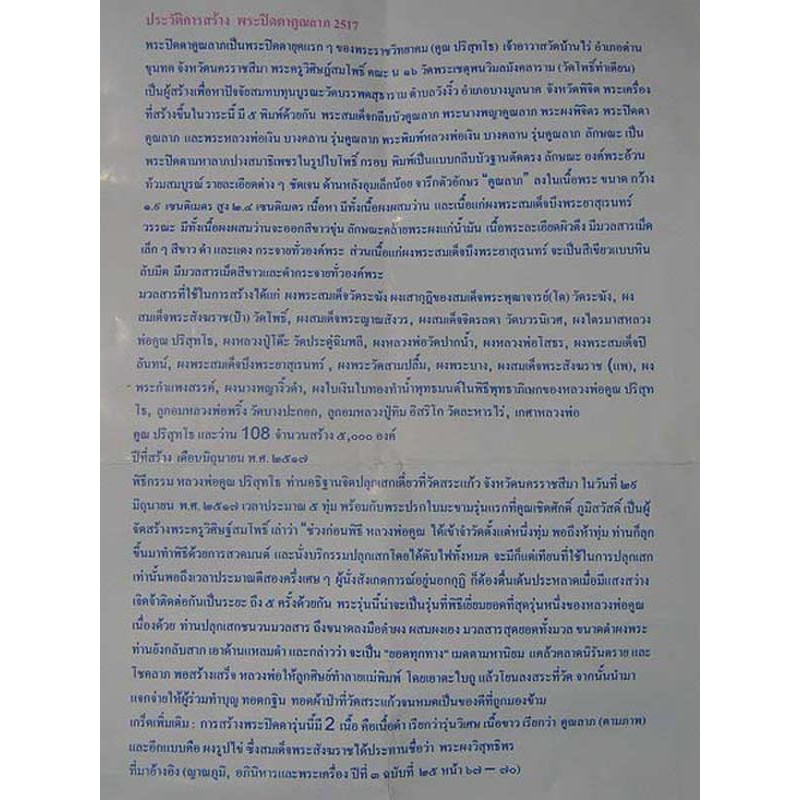 ประวัติการสร้าง พระปิดตาคูณลาภ 2517
พระปิดตาคูณลาภเป็นพระปิดตายุคแรก ๆ ของพระราชวิทยาคม (คูณ ปริสุทโธ) เจ้าอาวาสวัดบ้านไร่ อำเภอด่าน
ขุนทด จังหวัดนครราชสีมา พระครูวิศิษฎ์สมโพธิ์ คณะ น ๑๖ วัดพระเชตุพนวิมลมังคลาราม (วัดโพธิ์ท่าเตียน)
เป็นผู้สร้างเพื่อหาปัจจัยสมทบทุนบูรณะวัดบรรพตสุธาราม ตำบลวังงิ้ว อำเภอบางมูลนาค จังหวัดพิจิต พระเครื่อง
ที่สร้างขึ้นในวาระนี้ มี ๕ พิมพ์ด้วยกัน พระสมเด็จกลีบบัวคูณลาภ พระนางพญาคูณลาภ พระผงพิจิตร พระปิดตา
คูณลาภ และพระหลวงพ่อเงิน บางคลาน รุ่นคูณลาภ พระพิมพ์หลวงพ่อเงิน บางคลาน รุ่นคูณลาภ ลักษณะ เป็น
พระปิดตามหาลาภปางสมาธิเพชรในรูปใบโพธิ์ กรอบ พิมพ์เป็นแบบกลีบบัวฐานตัดตรง ลักษณะ องค์พระอ้วน
ท้วมสมบูรณ์ รายละเอียดต่าง ๆ ชัดเจน ด้านหลังอูมเล็กน้อย จารึกตัวอักษร "คูณลาภ" ลงในเนื้อพระ ขนาด กว้าง
๑.๙ เซนติเมตร สูง ๒.๔ เซนติเมตร เนื้อหา มีทั้งเนื้อผงผสมว่าน และเนื้อแก่ผงพระสมเด็จบึงพระยาสุเรนทร์
วรรณะ มีทั้งเนื้อผงผสมว่านจะออกสีขาวขุ่น ลักษณะคล้ายพระผงแก่น้ำมัน เนื้อพระละเอียดผิวตึง มีมวลสารเม็ด
เล็ก ๆ สีขาว ดำ และแดง กระจายทั่วองค์พระ ส่วนเนื้อแก่ผงพระสมเด็จบึงพระยาสุเรนทร์ จะเป็นสีเขียวแบบหิน
ลับมีด มีมวลสารเม็ดสีขาวและดำกระจายทั่วองค์พระ
มวลสารที่ใช้ในการสร้างได้แก่ ผงพระสมเด็จวัดระฆัง ผงเสากุฏิของสมเด็จพระพุฒาจารย์(โต) วัดระฆัง, ผง
สมเด็จพระสังฆราช(ป๋า) วัดโพธิ์, ผงสมเด็จพระญาณสังวร, ผงสมเด็จจิตรลดา วัดบวรนิเวศ, ผงไตรมาสหลวง
พ่อคูณ ปริสุทโธ, ผงหลวงปู่โต๊ะ วัดประดู่ฉิมพลี, ผงหลวงพ่อวัดปากน้ำ, ผงหลวงพ่อโสธร, ผงพระสมเด็จปิ
ลันทน์, ผงพระสมเด็จบึงพระยาสุเรนทร์ , ผงพระวัดสามปลื้ม, ผงพระบาง, ผงสมเด็จพระสังฆราช (แพ), ผง
พระกำแพงสรรค์, ผงนางพญางิ้วดำ, ผงใบเงินใบทองทำน้ำพุทธมนต์ในพิธีพุทธาภิเษกของหลวงพ่อคูณ ปริสุท
โธ, ลูกอมหลวงพ่อพริ้ง วัดบางปะกอก, ลูกอมหลวงปู่ทิม อิสริโก วัดละหารไร่, เกศาหลวงพ่อ
คูณ ปริสุทโธ และว่าน 108 จำนวนสร้าง ๕,๐๐๐ องค์
ปีที่สร้าง เดือนมิถุนายน พ.ศ. ๒๕๑๗
พิธีกรรม หลวงพ่อคูณ ปริสุทโธ ท่านอธิฐานจิตปลุกเสกเดี่ยวที่วัดสระแก้ว จังหวัดนครราชสีมา ในวันที่ ๒๙
มิถุนายน พ.ศ. ๒๕๑๗ เวลาประมาณ ๕ ทุ่ม พร้อมกับพระปรกใบมะขามรุ่นแรกที่คูณเชิดศักดิ์ ภูมิสวัสดิ์ เป็นผู้
จัดสร้างพระครูวิศิษฎ์สมโพธิ์ เล่าว่า "ช่วงก่อนพิธี หลวงพ่อคูณ ได้เข้าจำวัดตั้งแต่หนึ่งทุ่ม พอถึงห้าทุ่ม ท่านก็ลุก
ขึ้นมาทำพิธีด้วยการสวดมนต์ และนั่งบริกรรมปลุกเสกโดยได้ดับไฟทั้งหมด จะมีก็แต่เทียนที่ใช้ในการปลุกเสก
เท่านั้นพอถึงเวลาประมาณตีสองครึ่งเศษ ๆ ผู้นั่งสังเกตการณ์อยู่นอกกุฏิ ก็ต้องตื่นเต้นประหลาดเมื่อมีแสงสว่าง
เจิดจ้าติดต่อกันเป็นระยะ ถึง ๕ ครั้งด้วยกัน พระรุ่นนี้น่าจะเป็นรุ่นที่พิธีเยี่ยมยอดที่สุดรุ่นหนึ่งของหลวงพ่อคูณ
เนื่องด้วย ท่านปลุกเสกชนวนมวลสาร ถึงขนาดลงมือตำผง ผสมผงเอง มวลสารสุดยอดทั้งมวล ขนาดตำผงพระ
ท่านยังกลับสาก เอาด้านแหลมตำ และกล่าวว่า จะเป็น "ยอดทุกทาง" เมตตามหานิยม แคล้วคลาดนิรันตราย และ
โชคลาภ พอสร้างเสร็จ หลวงพ่อให้ลูกศิษย์ทำลายแม่พิมพ์ โดยเอาตะไบถู แล้วโยนลงสระที่วัด จากนั้นนำมา
แจกจ่ายให้ผู้ร่วมทำบุญ ทอดกฐิน ทอดผ้าป่าที่วัดสระแก้วจนหมดเป็นของดีที่ถูกมองข้าม
เกร็ดเพิ่มเติม : การสร้างพระปิดตารุ่นนี้มี 2 เนื้อ คือเนื้อดำ เรียกว่ารุ่นวิเศษ เนื้อขาว เรียกว่า คูณลาภ (ตามภาพ)
และอีกแบบคือ ผงรูปไข่ ซึ่งสมเด็จพระสังฆราชได้ประทานชื่อว่า พระผงวิสุทธิพร
ที่มาอ้างอิง (ญาณภูมิ, อภินิหารและพระเครื่อง ปีที่ ๓ ฉบับที่ ๒๕ หน้า ๖๗ – ๗๐)